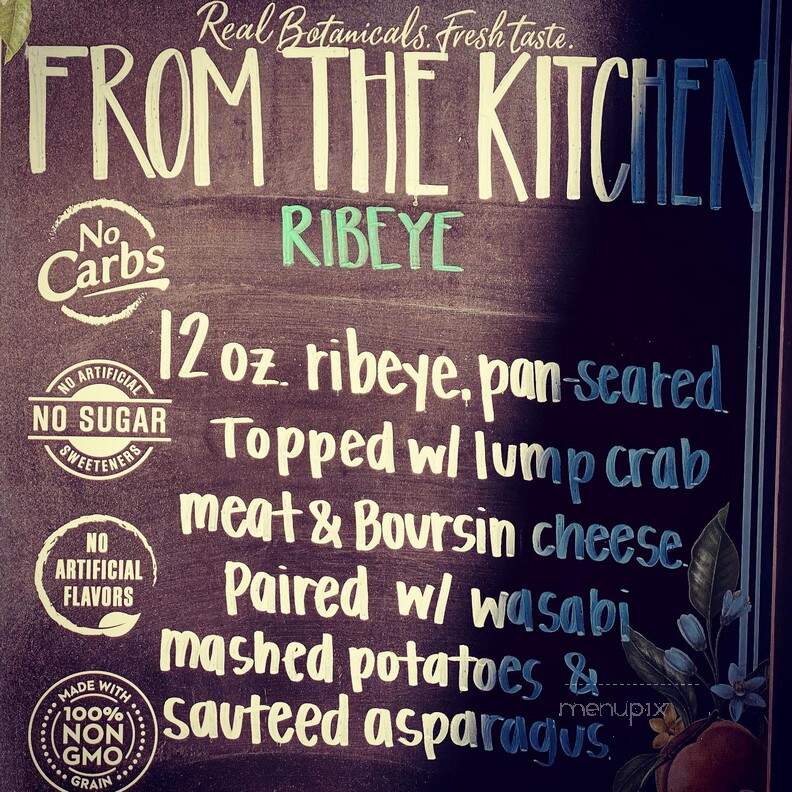 Real Botanicals. Fresh taste.
FROM THE KITCHEN
RIBEYE
No
Carbs
12 oz. ribeye, pan-seared.
Topped w/ lump crab
meat & Boursin cheese.
Paired w/ wasabi
mashed potatoes &
sauteed asparagus.
NO ARTIFICIAL
NO SUGAR
SWEETENERS
NO
ARTIFICIAL
FLAVORS
MADE WITH
100%
NON
GMO
GRAIN
menupix